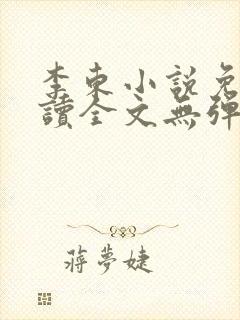 李東小說免
讀全文無彈
蔣夢婕